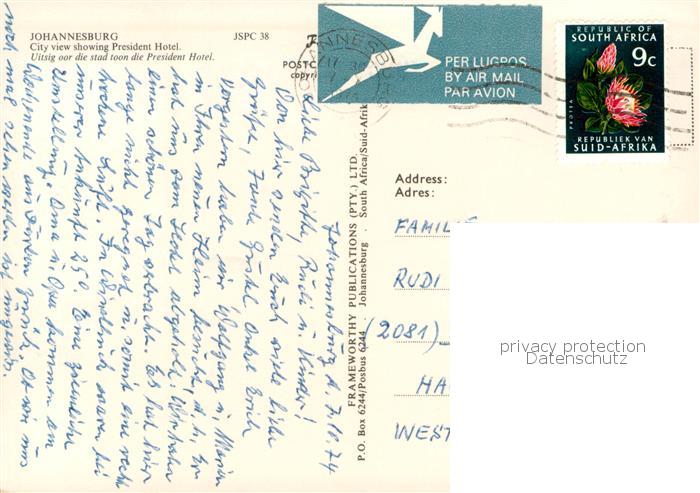 JOHANNESBURG JSPC 38
City view showing President Hotel.
Uitsig oor die stad toon die President Hotel.
POSTC
copyri
PER LUGPOS
BY AIR MAIL
PAR AVION
REPUBLIC OF
SOUTH AFRICA
9c
PROTEA
REPUBLIEK VAN
SUID-AFRIKA
FRAMEWORTHY PUBLICATIONS (PTY.) LTD.
P.O. Box 6244/Posbus 6244 Johannesburg . South Africa/Suid-Afrika
Address:
Adres:
FAMILIE
RUDI
(2081)
HA
WEST
privacy protection
Datenschutz
Johannesburg d. 7.10.74
Liebe Brigitte, Rudi u. Kinder!
Von hier senden Euch viele liebe
Grüße, Tante Gustel Onkel Erich
Vorgestern haben wir Wolfgang u.
in Ihrem neuen Heim
uns vom Hotel abgeholt. Wir haben
einen schönen Tag verbracht. Es hat hier
lange nicht geregnet u. somit eine recht
trockene Luft. In Windhoek waren bei
unserer Ankunft 29°. Eine
Umstellung. Oma u. Opa kommen am
Wochenende
noch mal sehen werden ist ungewiß.